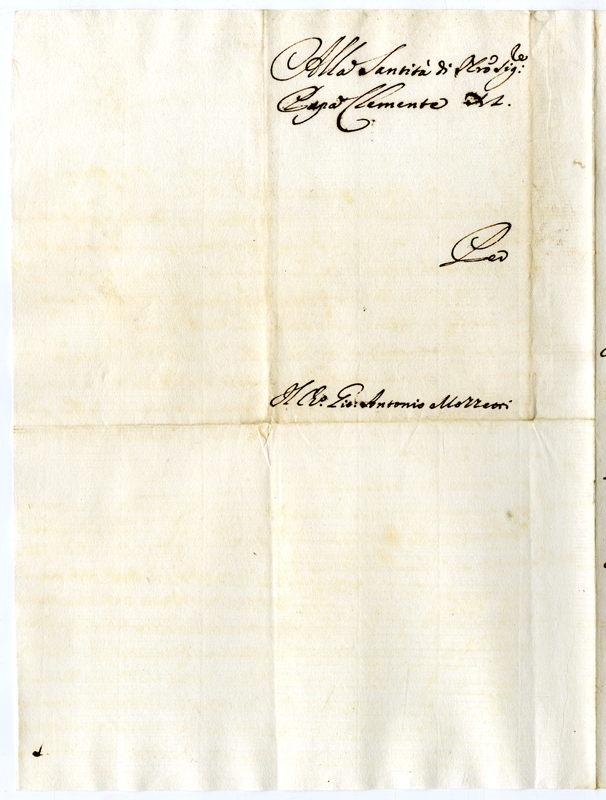 Alla Santità di Nrõ Sig.re
Papa Clemente XI.
Per
Il Gio: Antonio Mozzetti